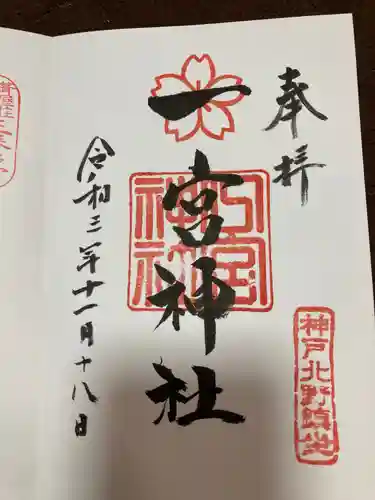 奉拝
神戸北野鎮坐
一宮神社
一宮神社
令和三年十一月十八日